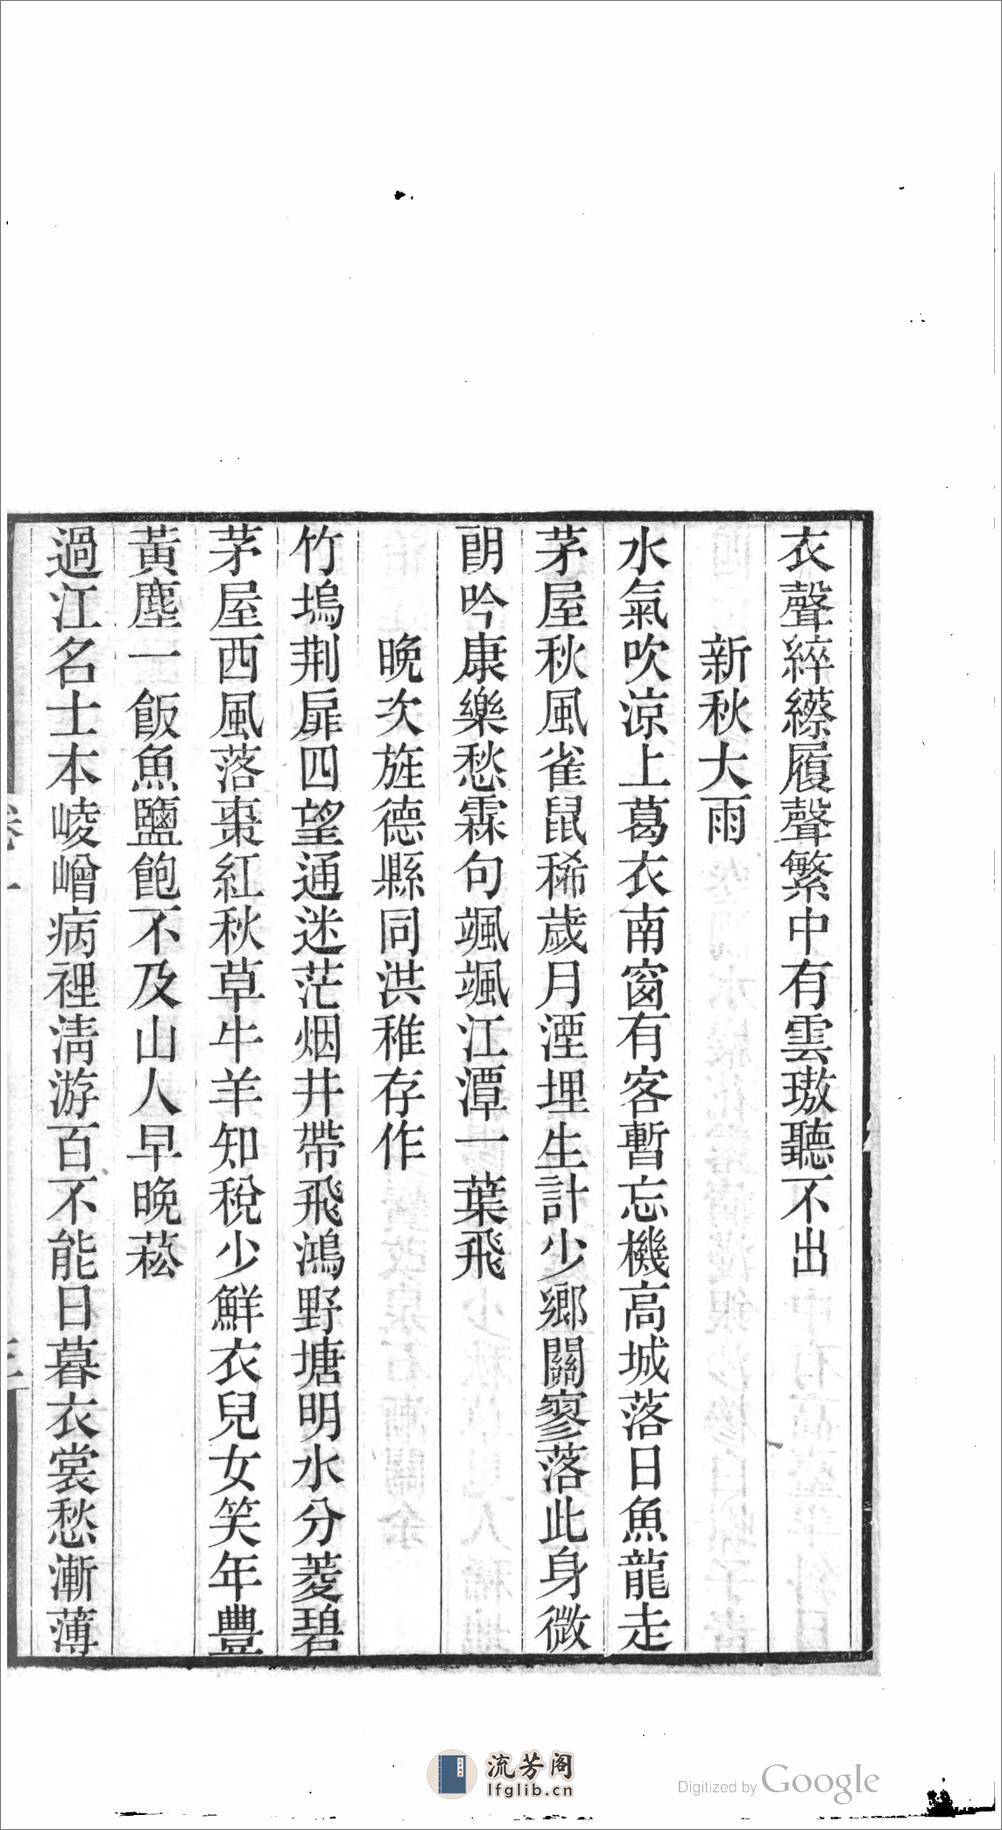 衣聲綷縩履聲繁中有雲璈聽不出
新秋大雨
水氣吹涼上葛衣南窗有客暫忘機高城落日魚龍走
茅屋秋風雀鼠稀歲月湮埋生計少鄉關寥落此身微
朗吟康樂愁霖句颯颯江潭一葉飛
晚次旌德縣同洪稚存作
竹塢荆扉四望通迷茫烟井帶飛鴻野塘明水分菱碧
茅屋西風落棗紅秋草牛羊知稅少鮮衣兒女笑年豐
黃塵一飯魚鹽飽不及山人早晚菘
過江名士本崚嶒病裡淸游百不能日暮衣裳愁漸薄
流芳阁
lfglib.cn
Digitized by Google